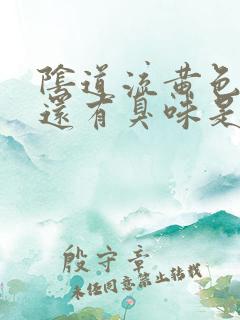 陰道流黃色
還有臭味是
殷守章
未经同意禁止转载